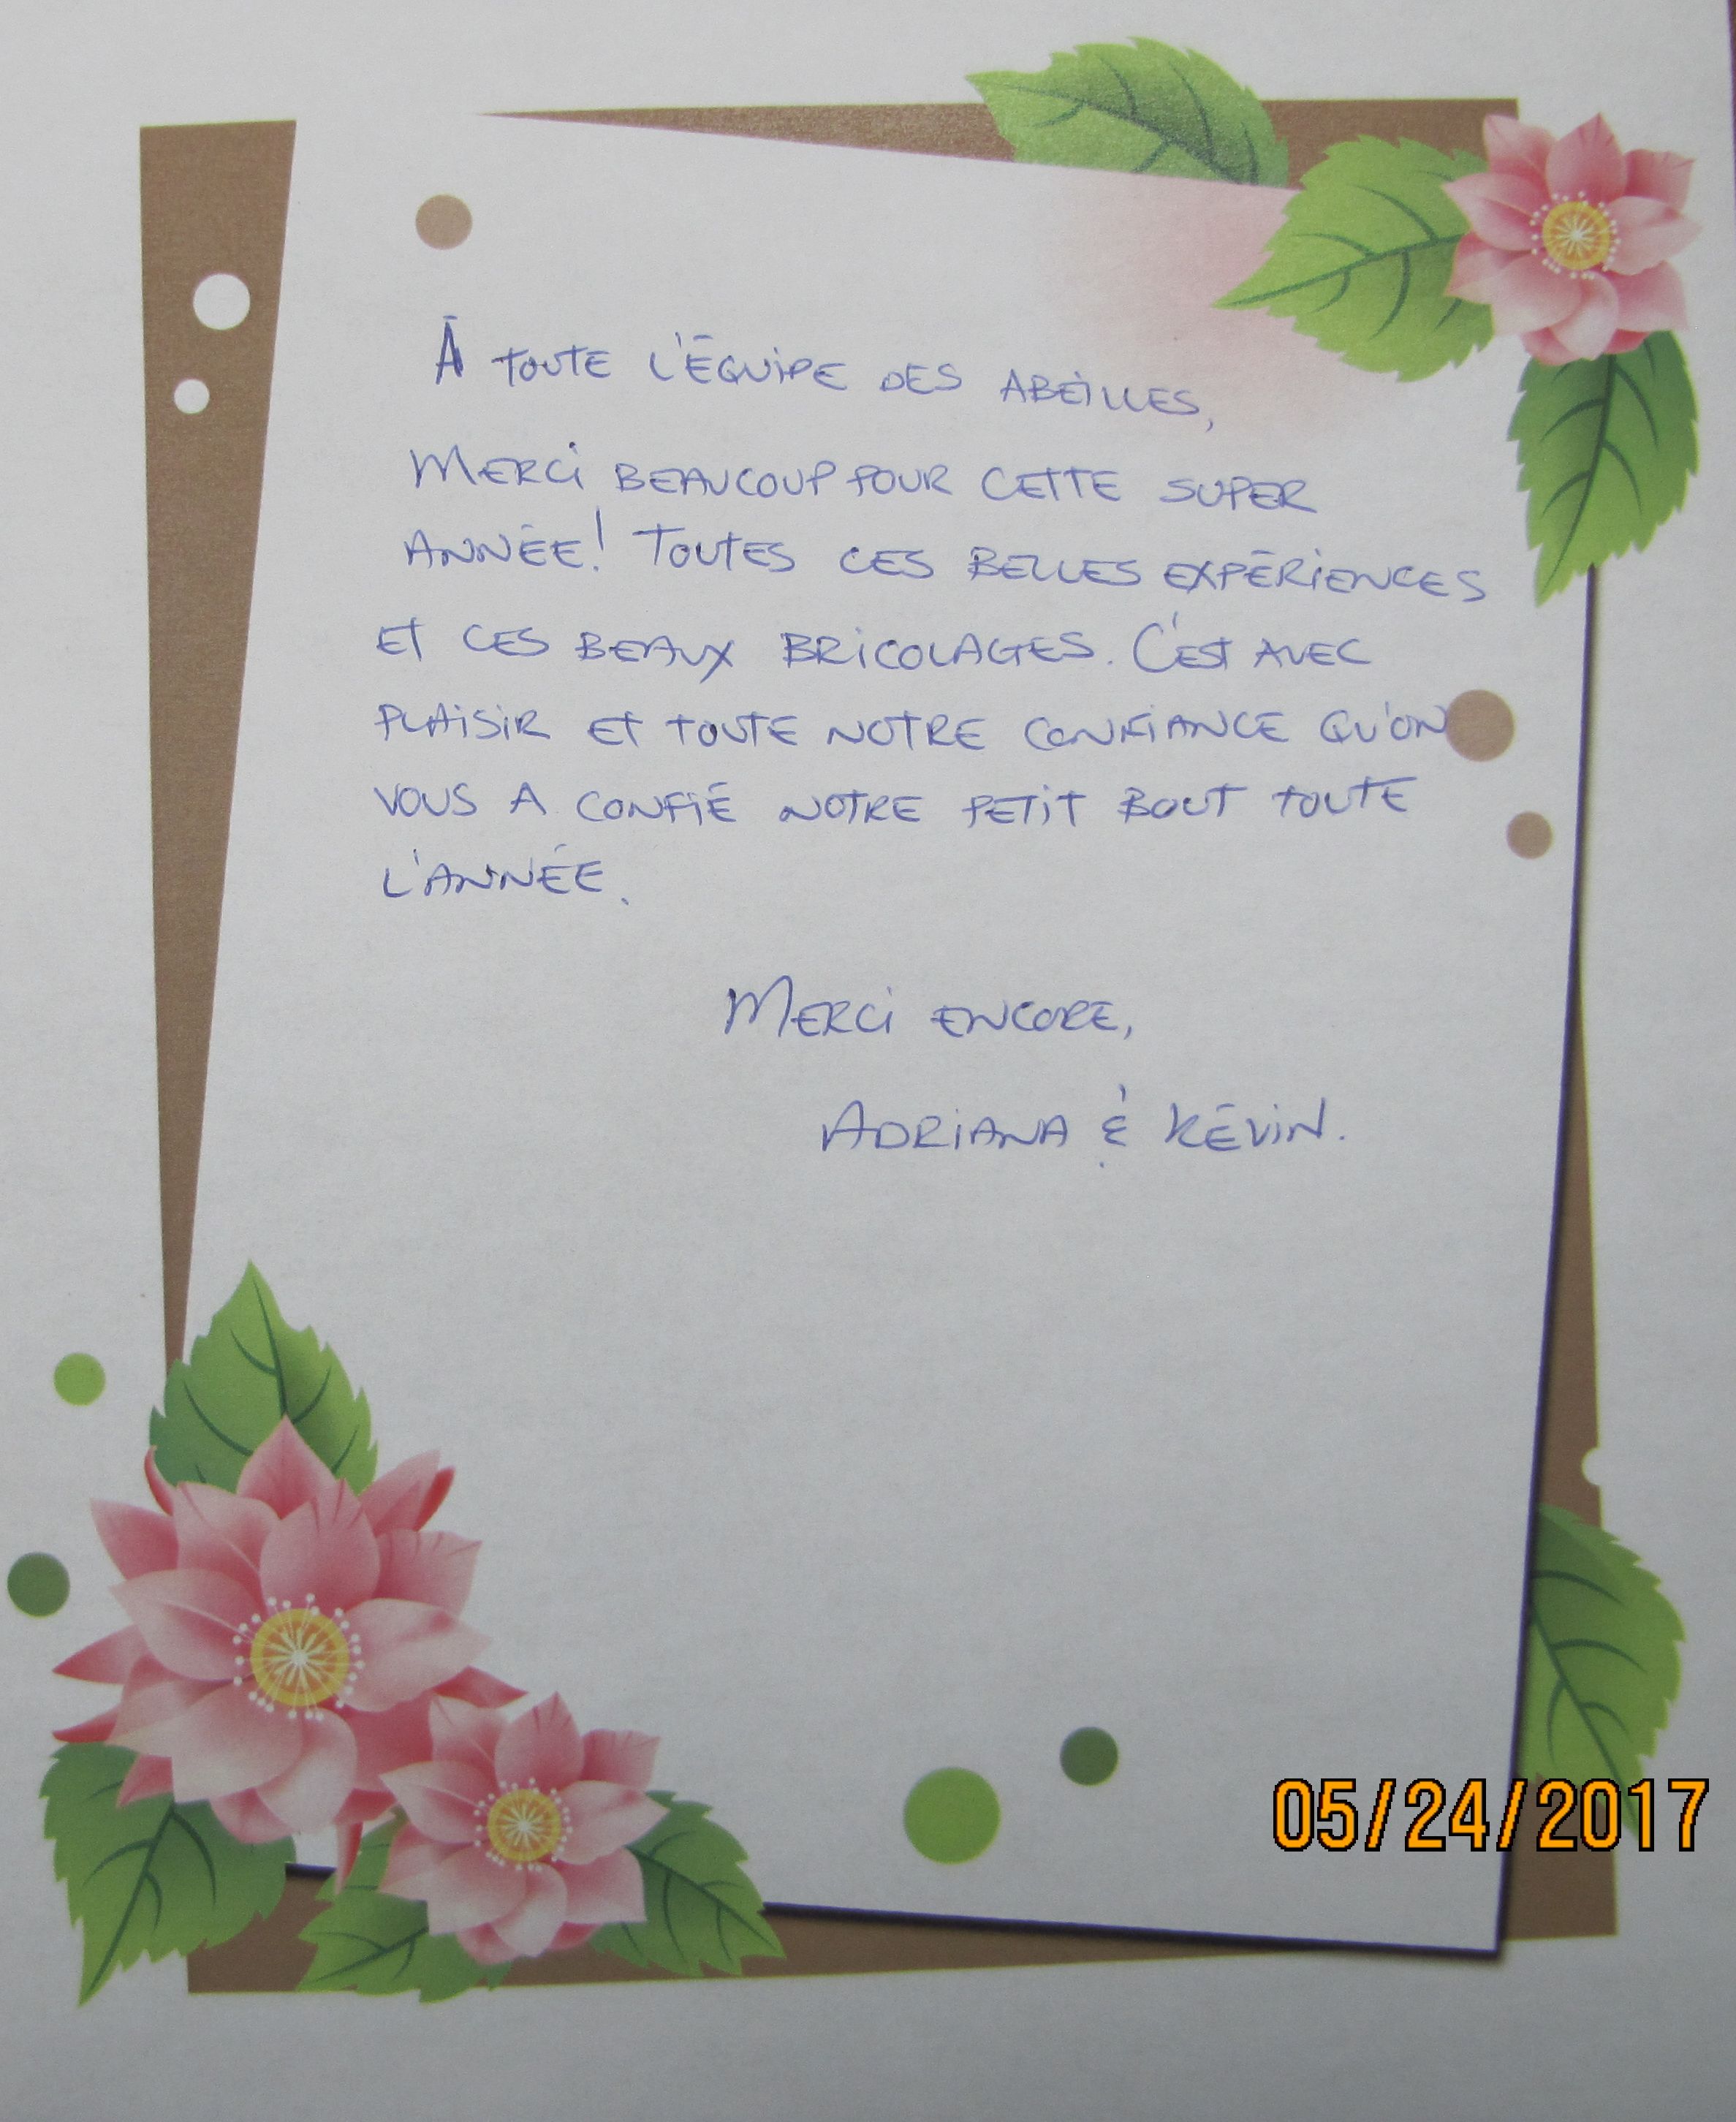 À TOUTE L'ÉQUIPE DES ABEILLES,
MERCI BEAUCOUP POUR CETTE SUPER
ANNÉE! TOUTES CES BELLES EXPÉRIENCES
ET CES BEAUX BRICOLAGES. C'EST AVEC
PLAISIR ET TOUTE NOTRE CONFIANCE QU'ON
VOUS A CONFIÉ NOTRE PETIT BOUT TOUTE
L'ANNÉE.
MERCI ENCORE,
ADRIANA & KÉVIN.
05/24/2017